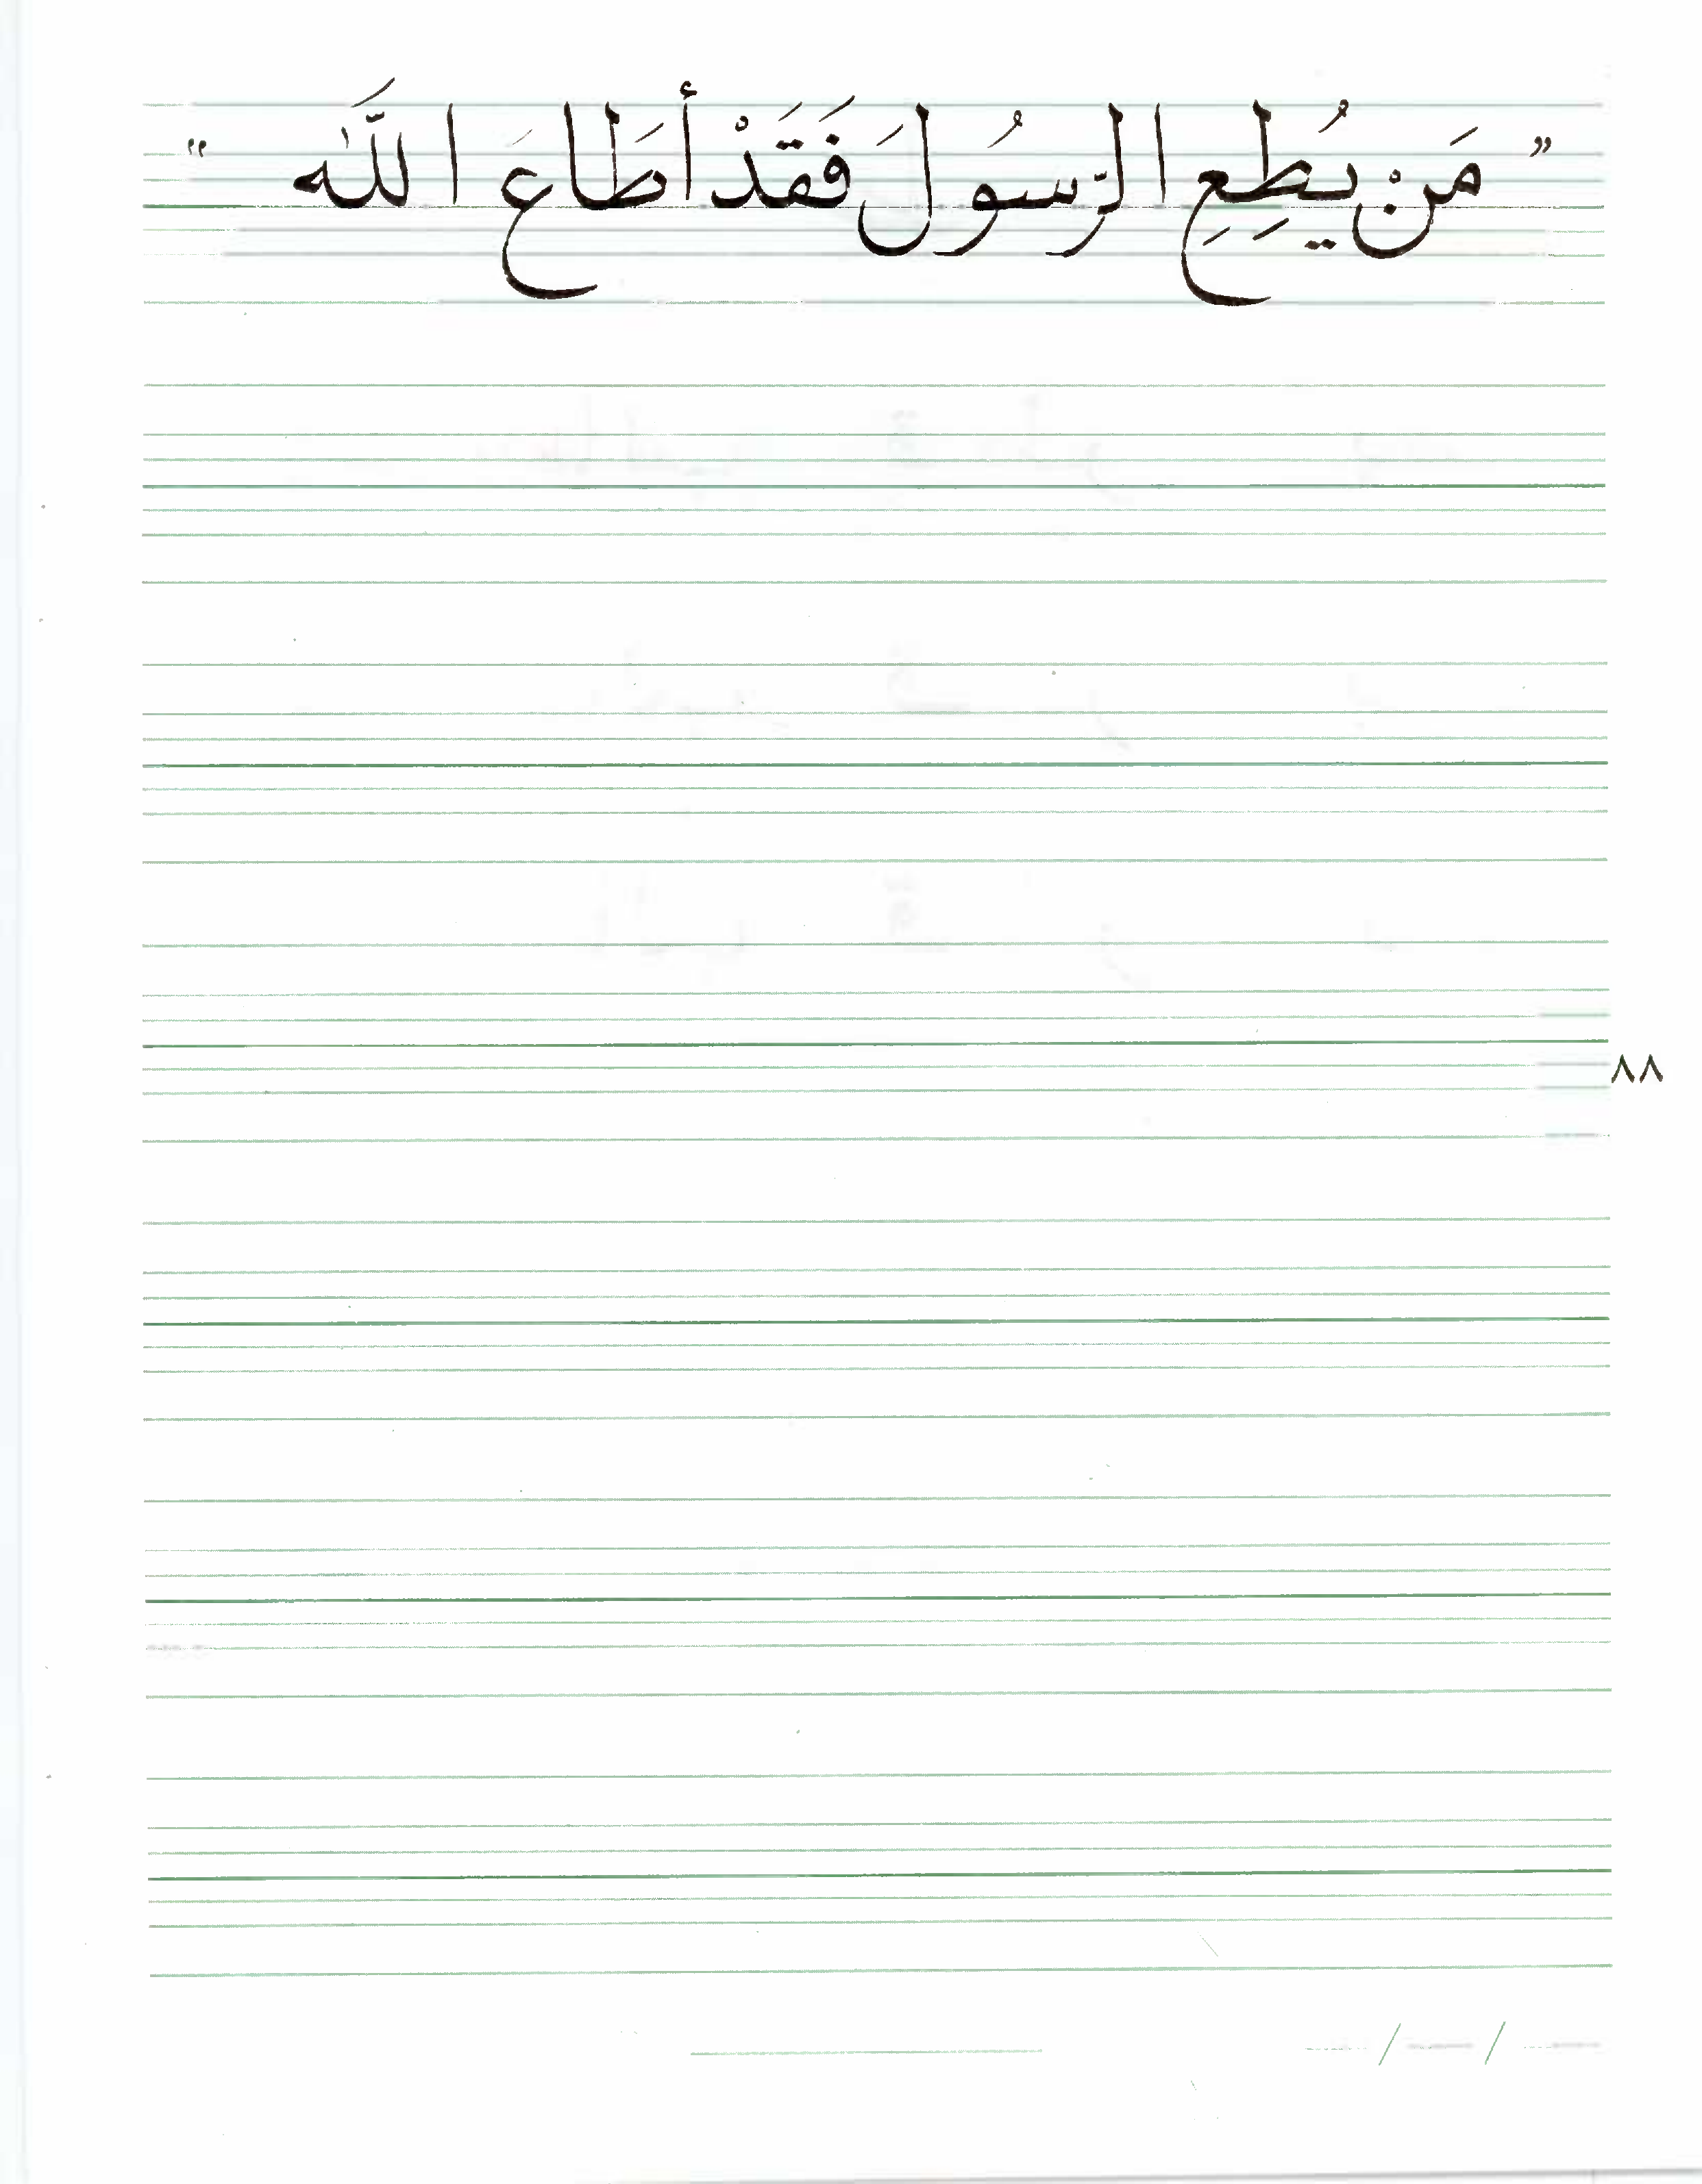 ” مَنْ يُطِعِ الرَّسُولَ فَقَدْ أَطَاعَ اللَّهَ “
٨٨